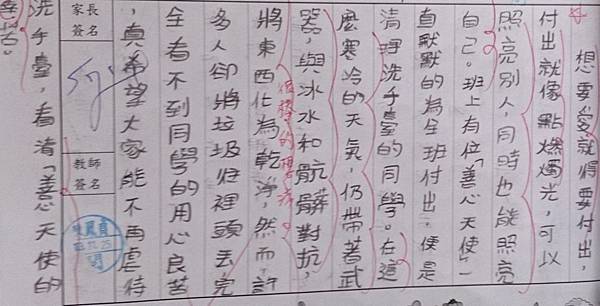 想要愛就得要付出，
付出就像點燃燭光，可以
照亮別人，同時也能照亮
自己。班上有位「善心天使」一
直默默的為全班付出，便是
清理洗手臺的同學。在這
麼寒冷的天氣，仍帶著武
器，與冰水和骯髒對抗，
將東西化為乾淨，然而，許
多人卻將垃圾往裡頭丟完
全看不到同學的用心良苦
，真希望大家能不再虐待
家長
簽名
教師
簽名
洗手臺，看清「善心天使的
辛苦。